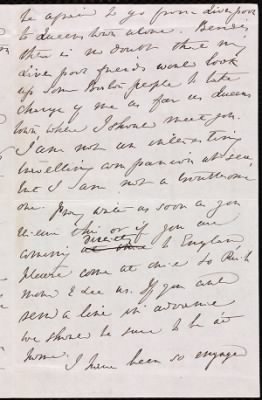 be afraid to go from Liverpool
to Queenstown alone. Besides
there is no doubt that my
Liverpool friends would look
up some Boston people to take
charge of me as far as Queens
town, where I should meet you.
I am not an interesting
travelling companion at sea,
but I am not a troublesome
one. Pray write as soon as you
receive this or if you are
coming directly to England
please come at once to Rich
mond & see us. If you could
send a line in advance
we should be sure to be at
home.
I have been so engaged